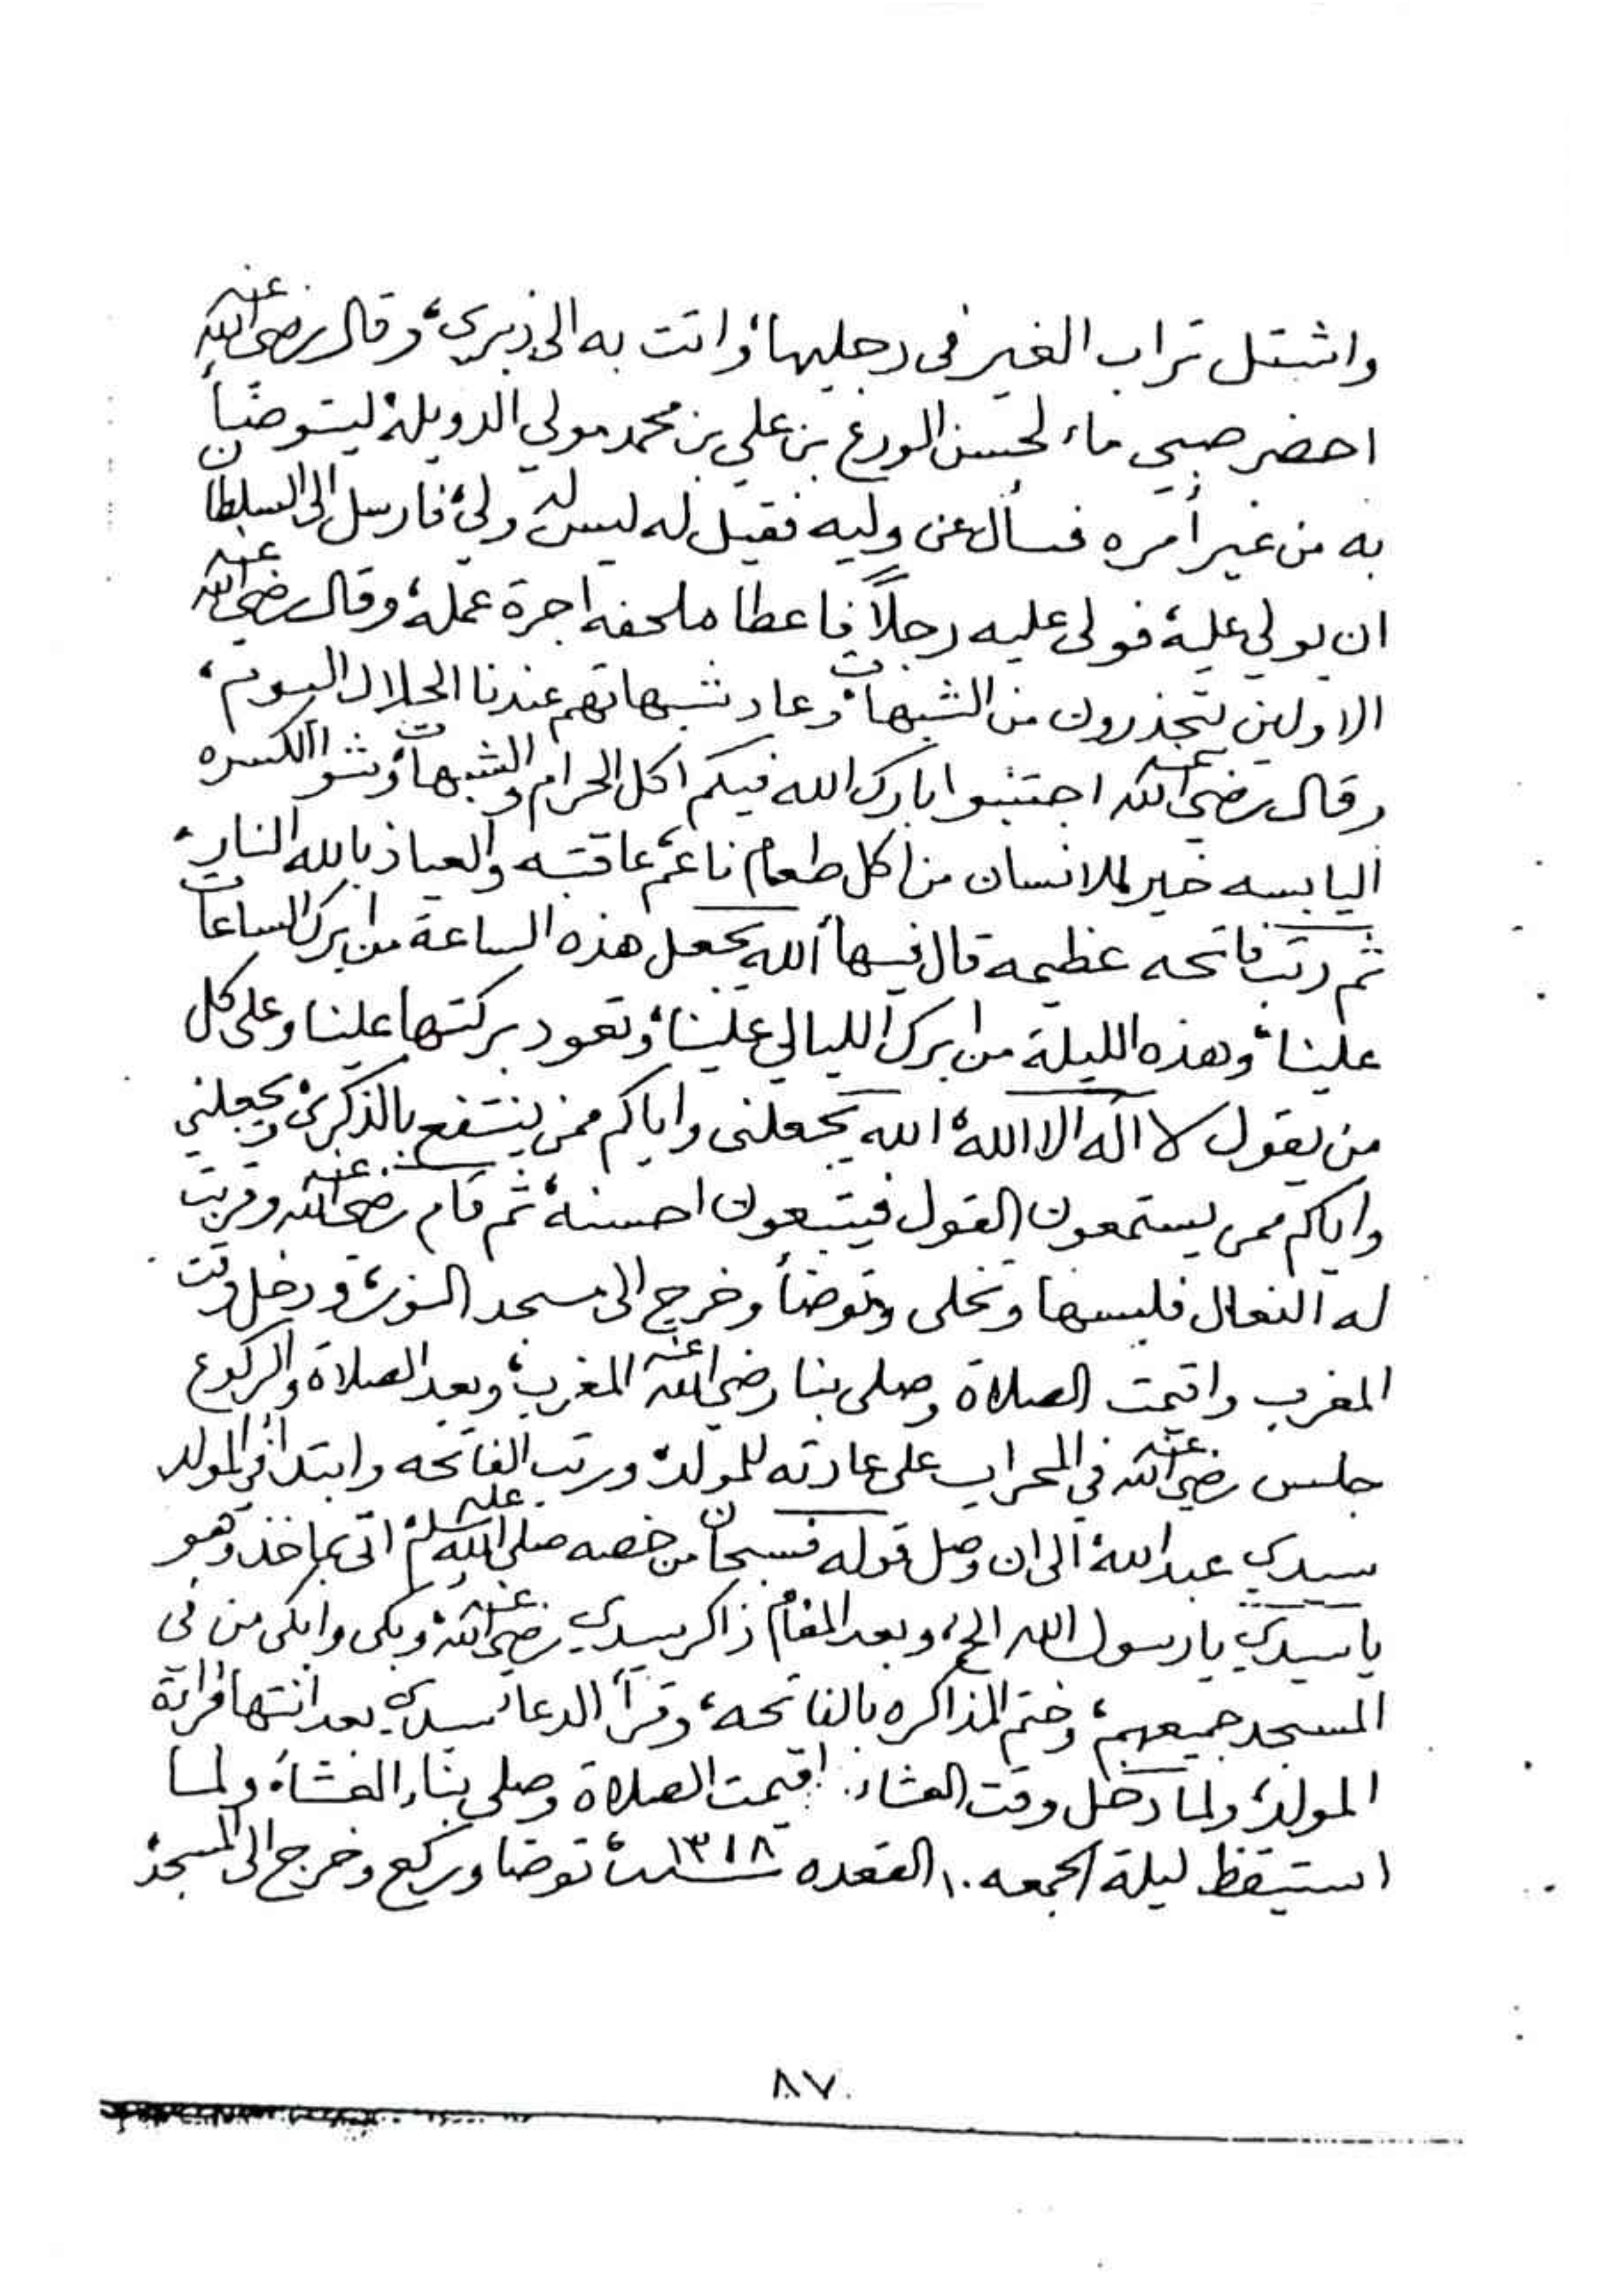 واشتل تراب الغير في رجليها، واتت به الى ذبري، وقال رضي الله عنه
احضر صبي ماء لحسن الورع بن علي بن محمد مولى الدويله، ليتوضأ
به من غير أمره فسأل عن وليه فقيل له ليس له ولي، فارسل الى السلطان
ان يولي عليه، فولى عليه رجلاً فاعطاه ملحفه اجرة عمله، وقال رضي الله عنه
الاولين يتحذرون من الشبهات، وعاد شبهاتهم عندنا الحلال اليوم،
وقال رضي الله عنه اجتنبوا بارك الله فيكم اكل الحرام والشبهات، وشوا الكسره
اليابسه خير للانسان من اكل طعام ناعم، عاقبته والعياذ بالله النار،
ثم رتب فاتحه عظيمة قال فيها الله يجعل هذه الساعة من ابرك الساعات
علينا، وهذه الليلة من ابرك الليالي علينا، وتعود بركتها علينا وعلى كل
من يقول لا اله الا الله، الله يجعلنى واياكم ممن ينتفع بالذكرى، ويجعلني
واياكم ممن يستمعون القول فيتبعون احسنه، ثم قام رضي الله عنه وقربت
له النعال فلبسها وتخلى وتوضأ وخرج الى مسجد النور، ودخل وقت
المغرب واقيمت الصلاة وصلى بنا رضي الله عنه المغرب، وبعد الصلاة والركوع
جلس رضي الله عنه في المحراب على عادته للمولد، ورتب الفاتحه وابتدأ في المولد
سيدي عبدالله، الى ان وصل قوله فسبحان من خصه صلى الله عليه وسلم، اتى بماخذ وهو
يا سيدي يا رسول الله الخ، وبعد المقام ذاكر سيدي رضي الله عنه، وبكى وابكى من في
المسجد جميعهم، وختم المذاكره بالفاتحه، وقرأ الدعاء سيدي بعد انتها قراءة
المولد، ولما دخل وقت العشاء اقيمت الصلاة وصلى بنا، العشاء، ولما
استيقظ ليلة الجمعه ١٠ القعده سنة ١٣١٨، توضا وركع وخرج الى المسجد،
٨٧